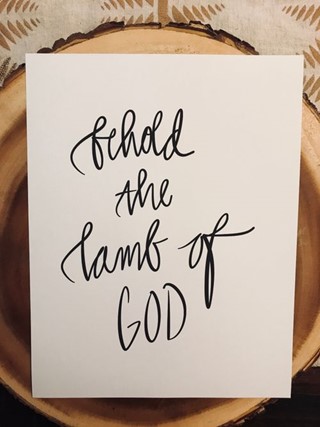 behold
the
lamb of
GOD